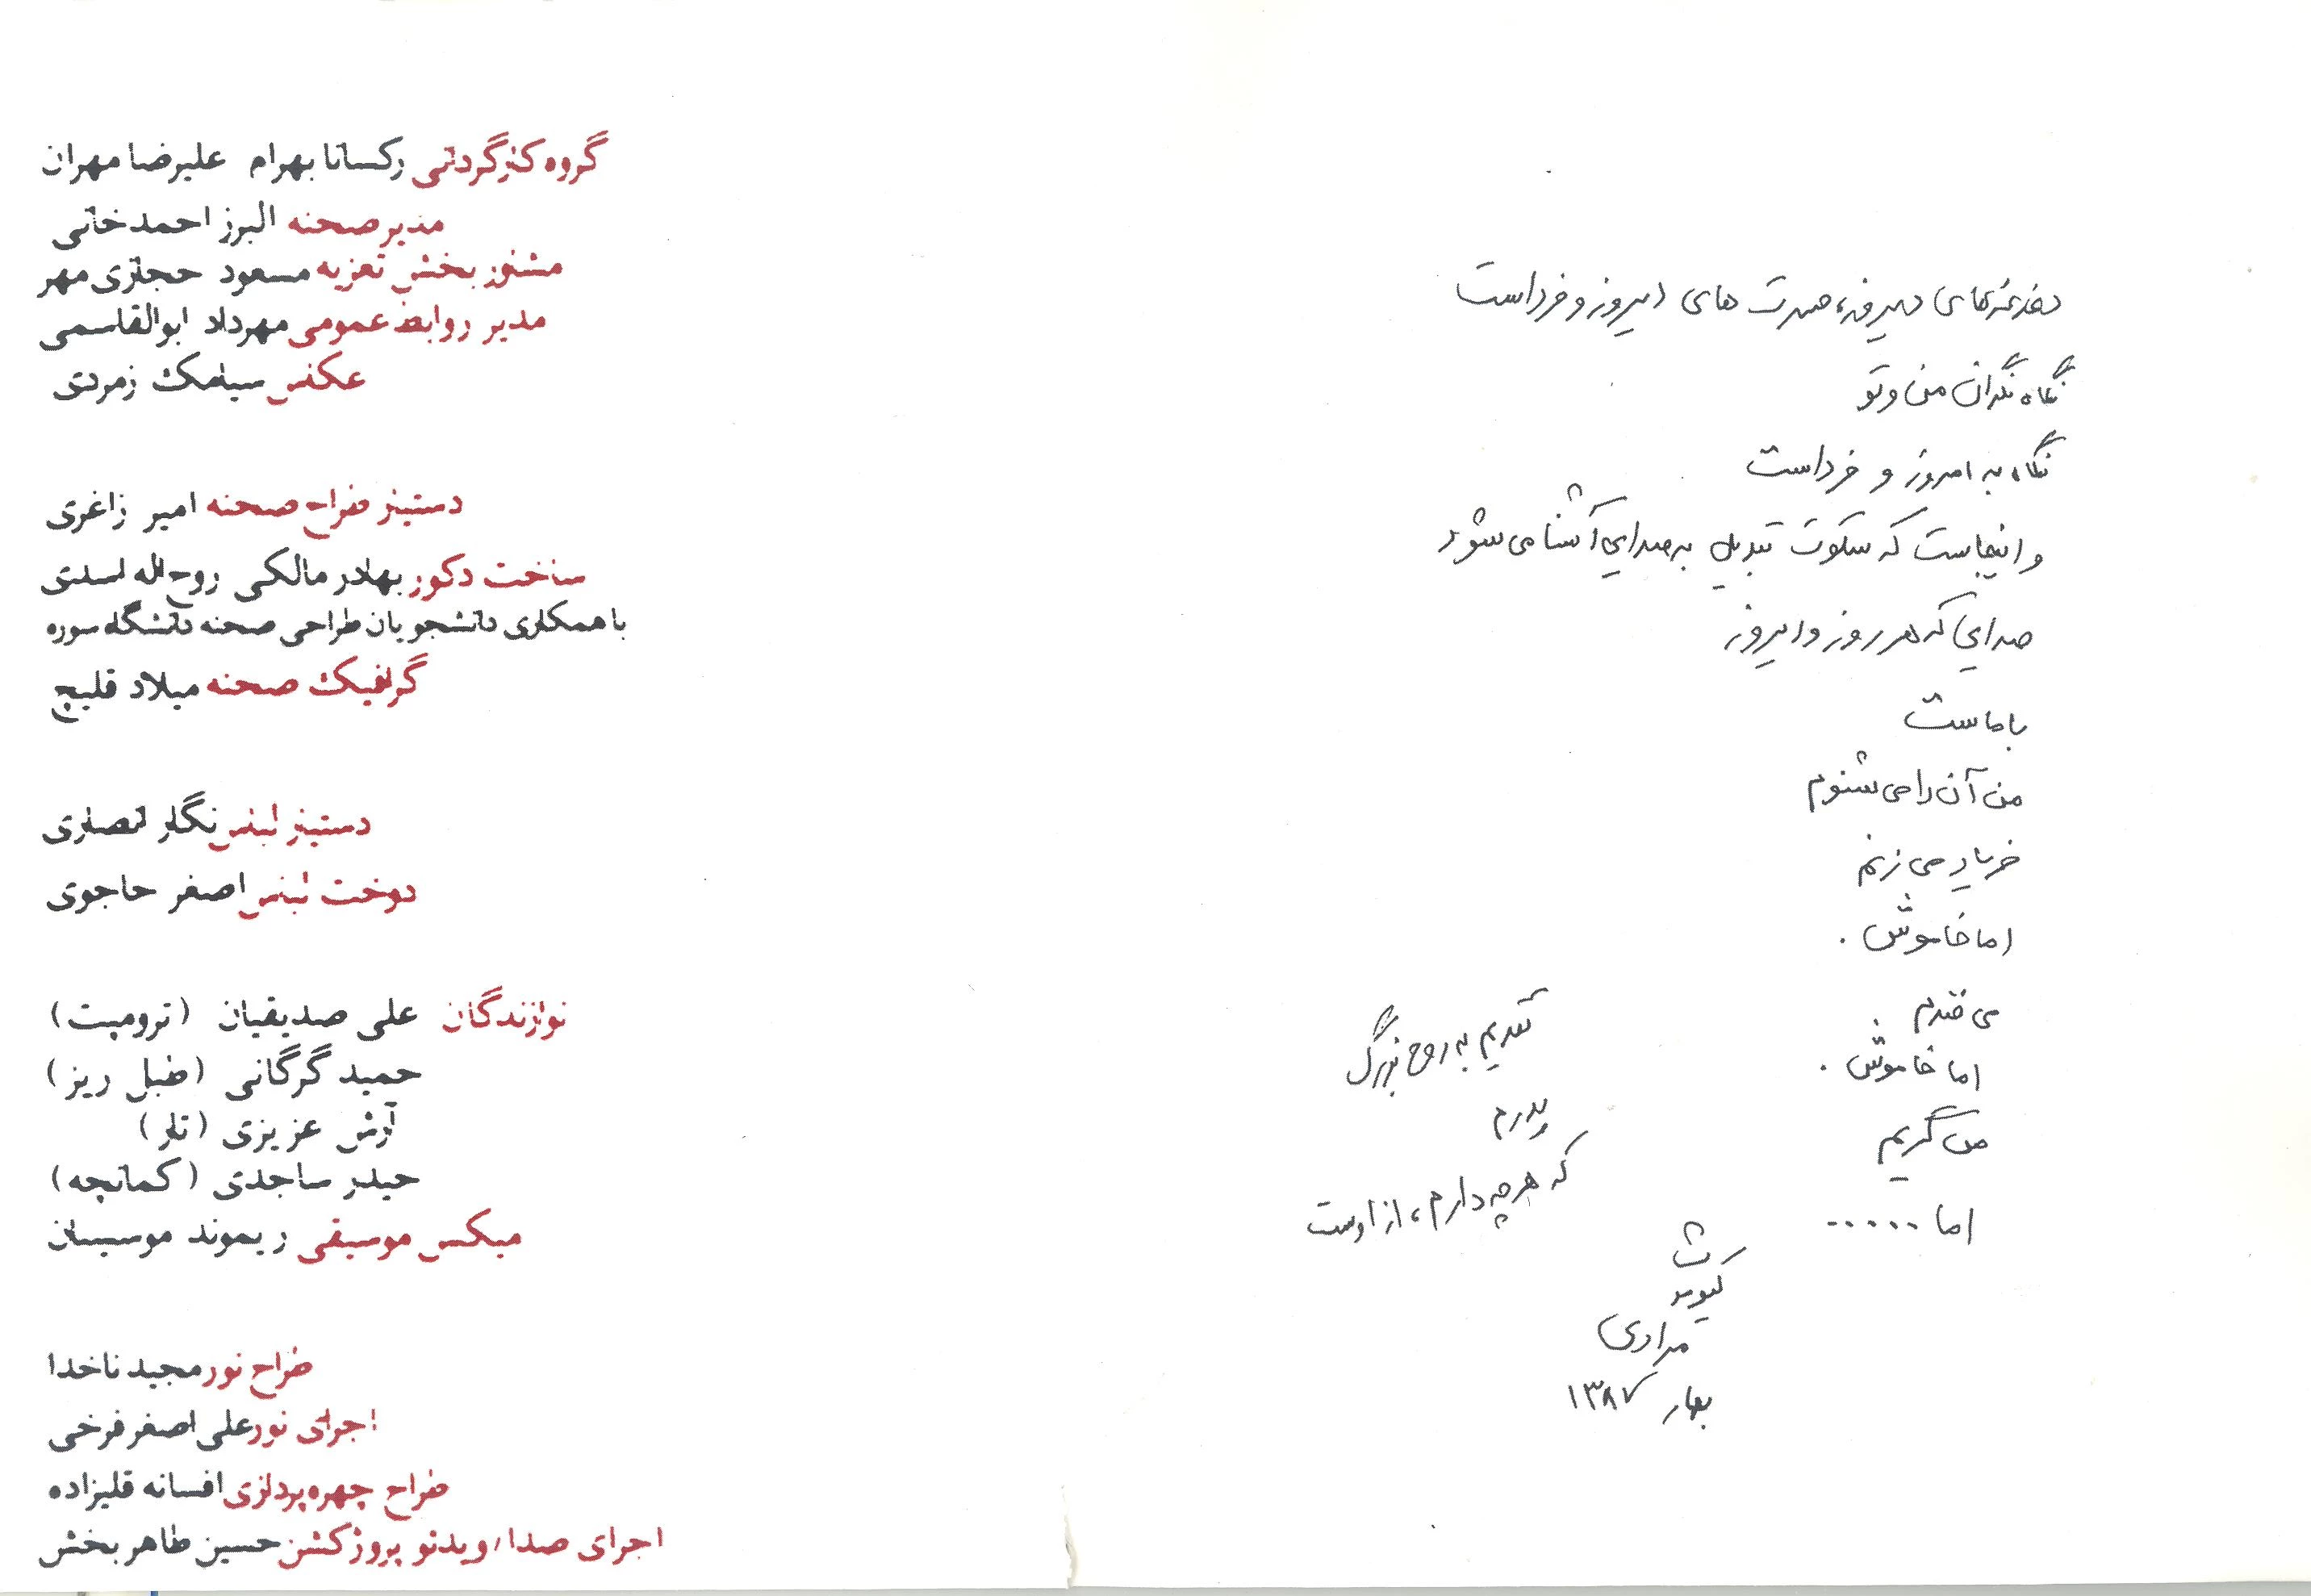 دغدغه‌های دیروز، حسرت های دیروز و فرداست
نگاه نگران من و تو
نگاه به امروز و فرداست
و اینجاست که سکوت تبدیل به صدایی آشنا می شود
صدایی که هر روز و امروز
با ماست
من آن را می شنوم
فریاد می زنم
اما خاموش .
می خندم
اما خاموش .
می گریم
اما ......
تقدیم به روح بزرگ
پدرم
که هرچه دارم، از اوست
کیومرث
مرادی
بهار ۱۳۸۷
گروه کارگردانی رکسانا بهرام علیرضا مهران
مدیر صحنه البرز احمدخانی
مشاور بخش تعزیه مسعود حجازی مهر
مدیر روابط عمومی مهرداد ابوالقاسمی
عکاس سیامک زمردی
دستیار طراح صحنه امیر زاغری
ساخت دکور بهادر مالکی روح الله اسدی
با همکاری دانشجویان طراحی صحنه دانشگاه سوره
گرافیک صحنه میلاد قلیچ
دستیار لباس نگار انصاری
دوخت لباس اصغر حاجوی
نوازندگان علی صدیقیان (ترومپت)
حمید گرگانی (طبل ریز)
آرش عزیزی (تار)
حیدر ساجدی (کمانچه)
میکس موسیقی ریموند موسسیان
طراح نور مجید ناخدا
اجرای نور علی اصغر فرخی
طراح چهره پردازی افسانه قلیزاده
اجرای صدا/ویدئو پروژکشن حسین طاهربخش